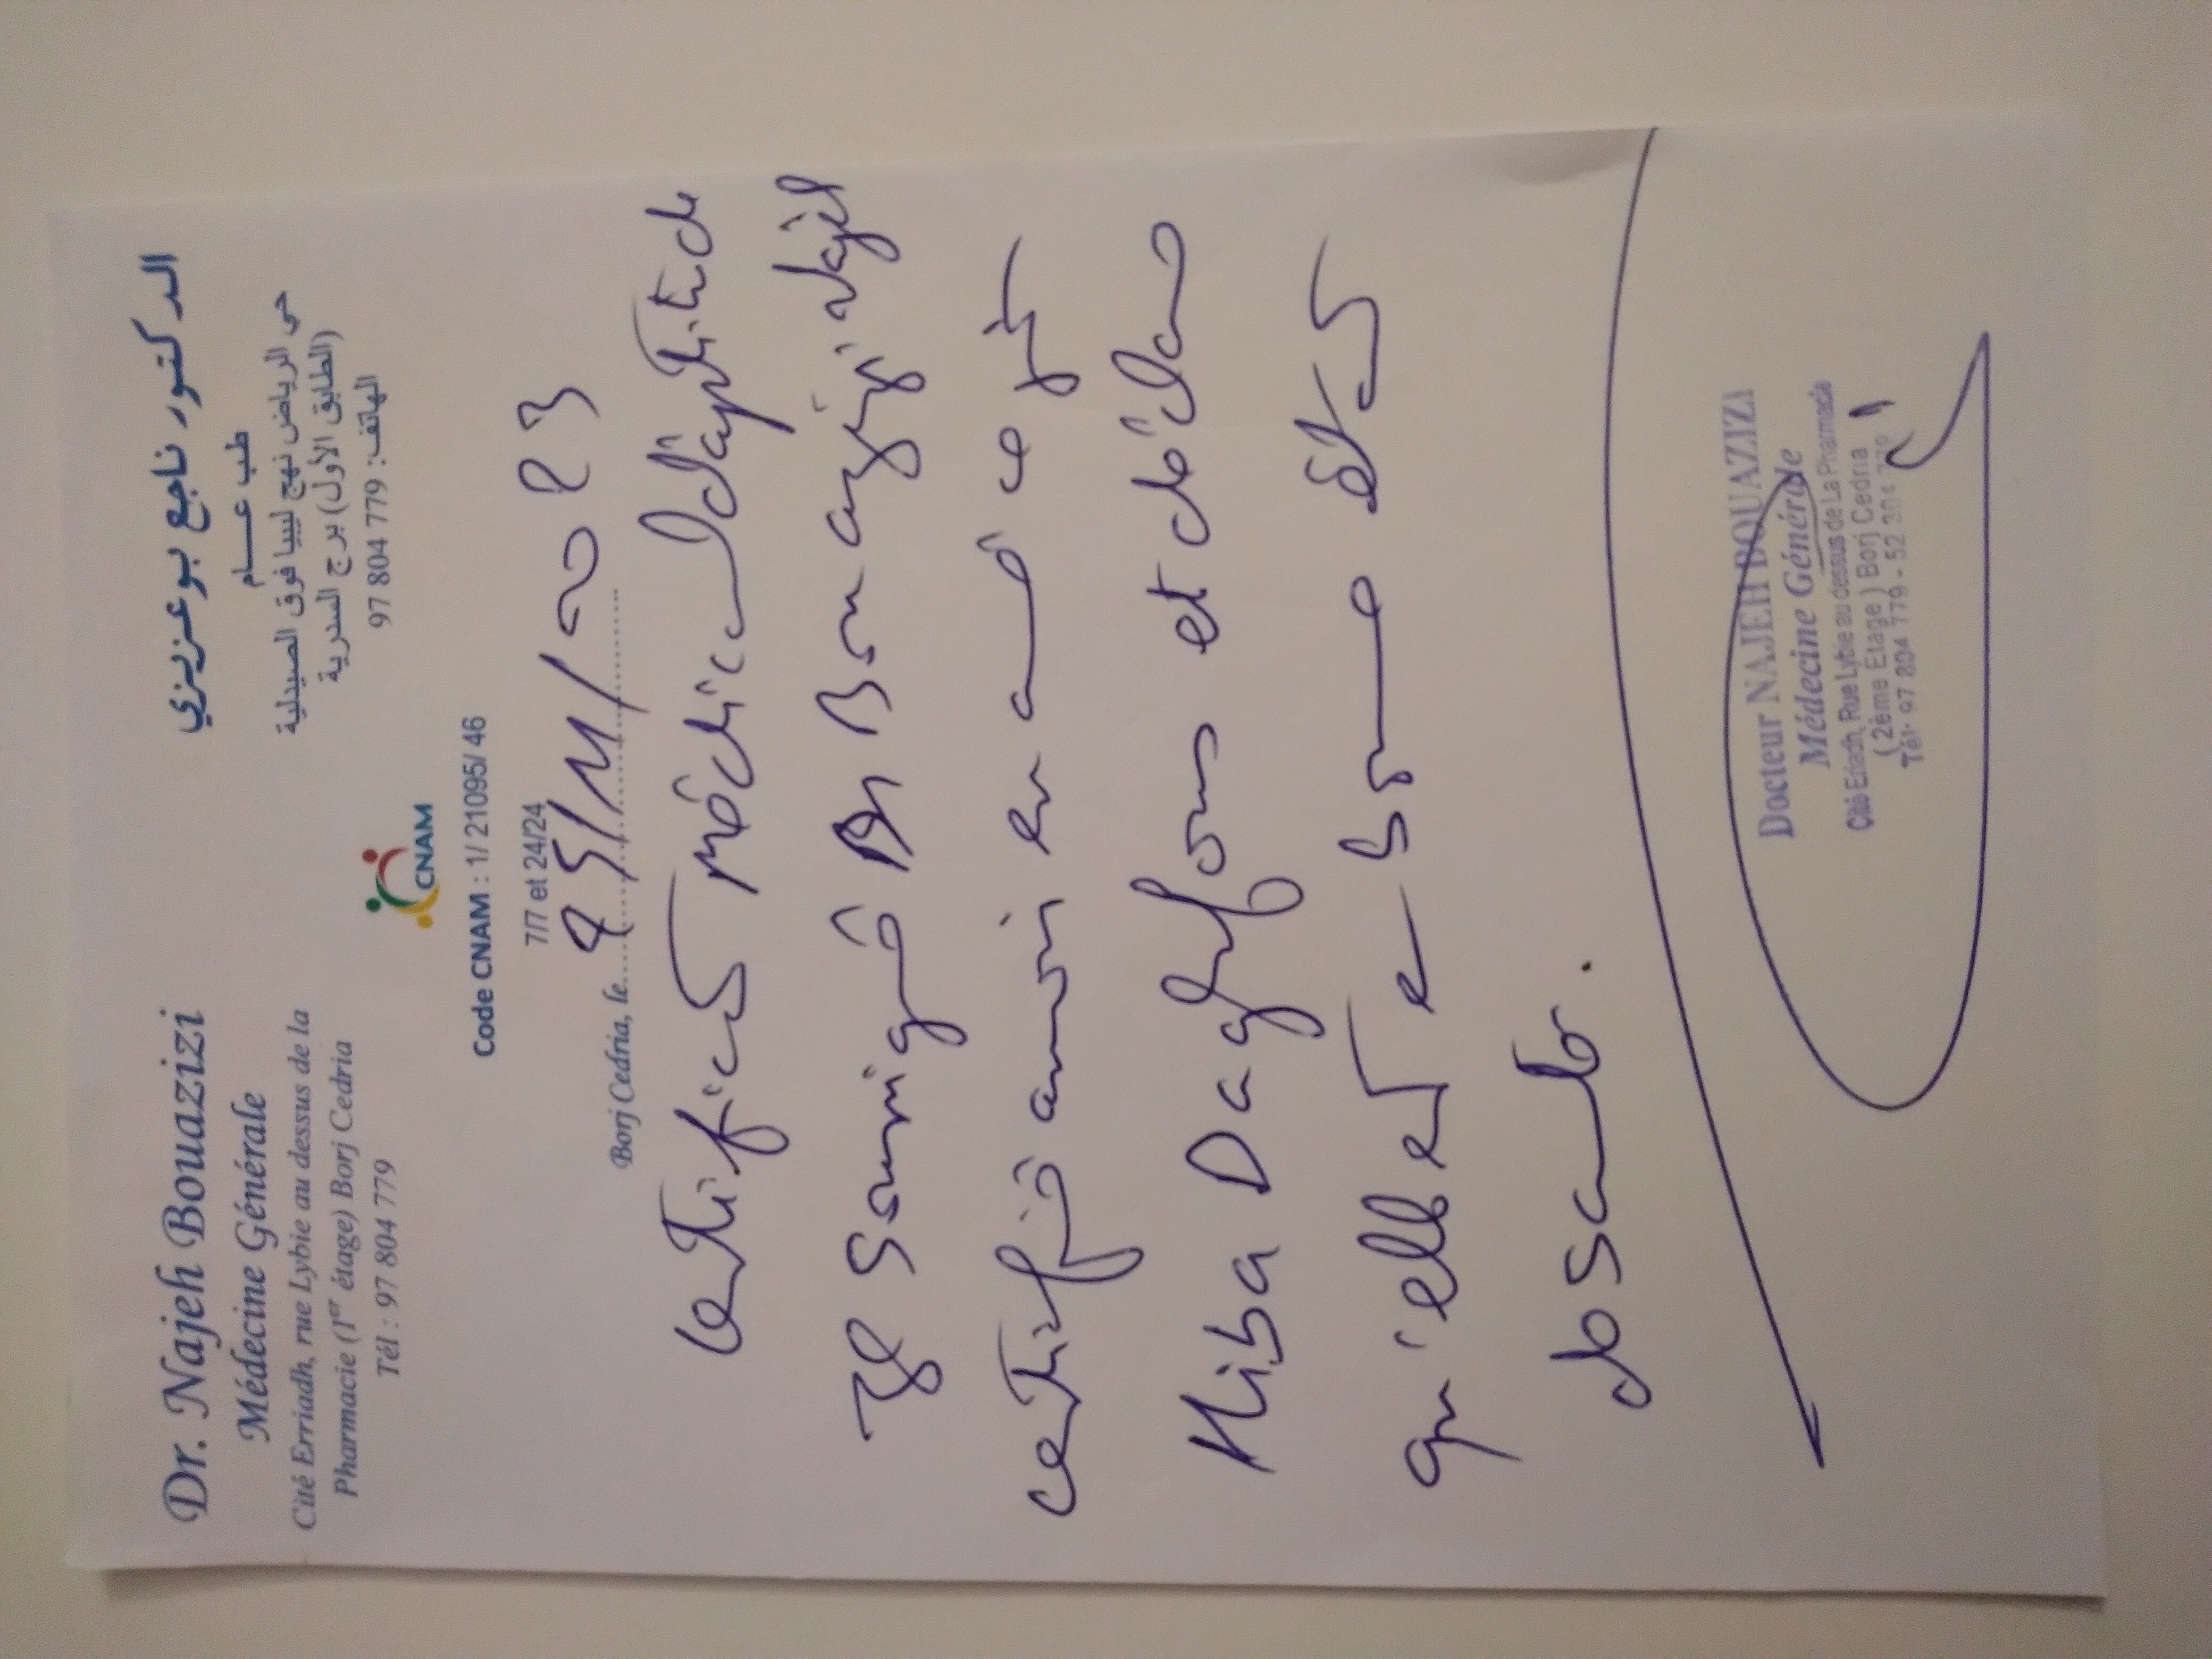 Dr. Najeh Bouazizi
Médecine Générale
Cité Erriadh, rue Lybie au dessus de la
Pharmacie (1er étage) Borj Cedria
Tél : 97 804 779
الدكتور ناجع بوعزيزي
طب عام
حي الرياض نهج ليبيا فوق الصيدلية
(الطابق الأول) برج السدرية
الهاتف: 97 804 779
CNAM
Code CNAM : 1/ 21095/ 46
7/7 et 24/24
Borj Cedria, le
Certificat médical d'aptitude
Je Soussigné Dr Bouazizi Najeh
certifie avoir examiné ce jr
Hiba Daghfous et déclare
qu'elle est en bonne état
de santé.
Docteur NAJEH BOUAZIZI
Médecine Générale
Cité Erriadh, Rue Lybie au dessus de La Pharmacie
( 2ème Étage ) Borj Cedria
Tél: 97 804 779 - 52